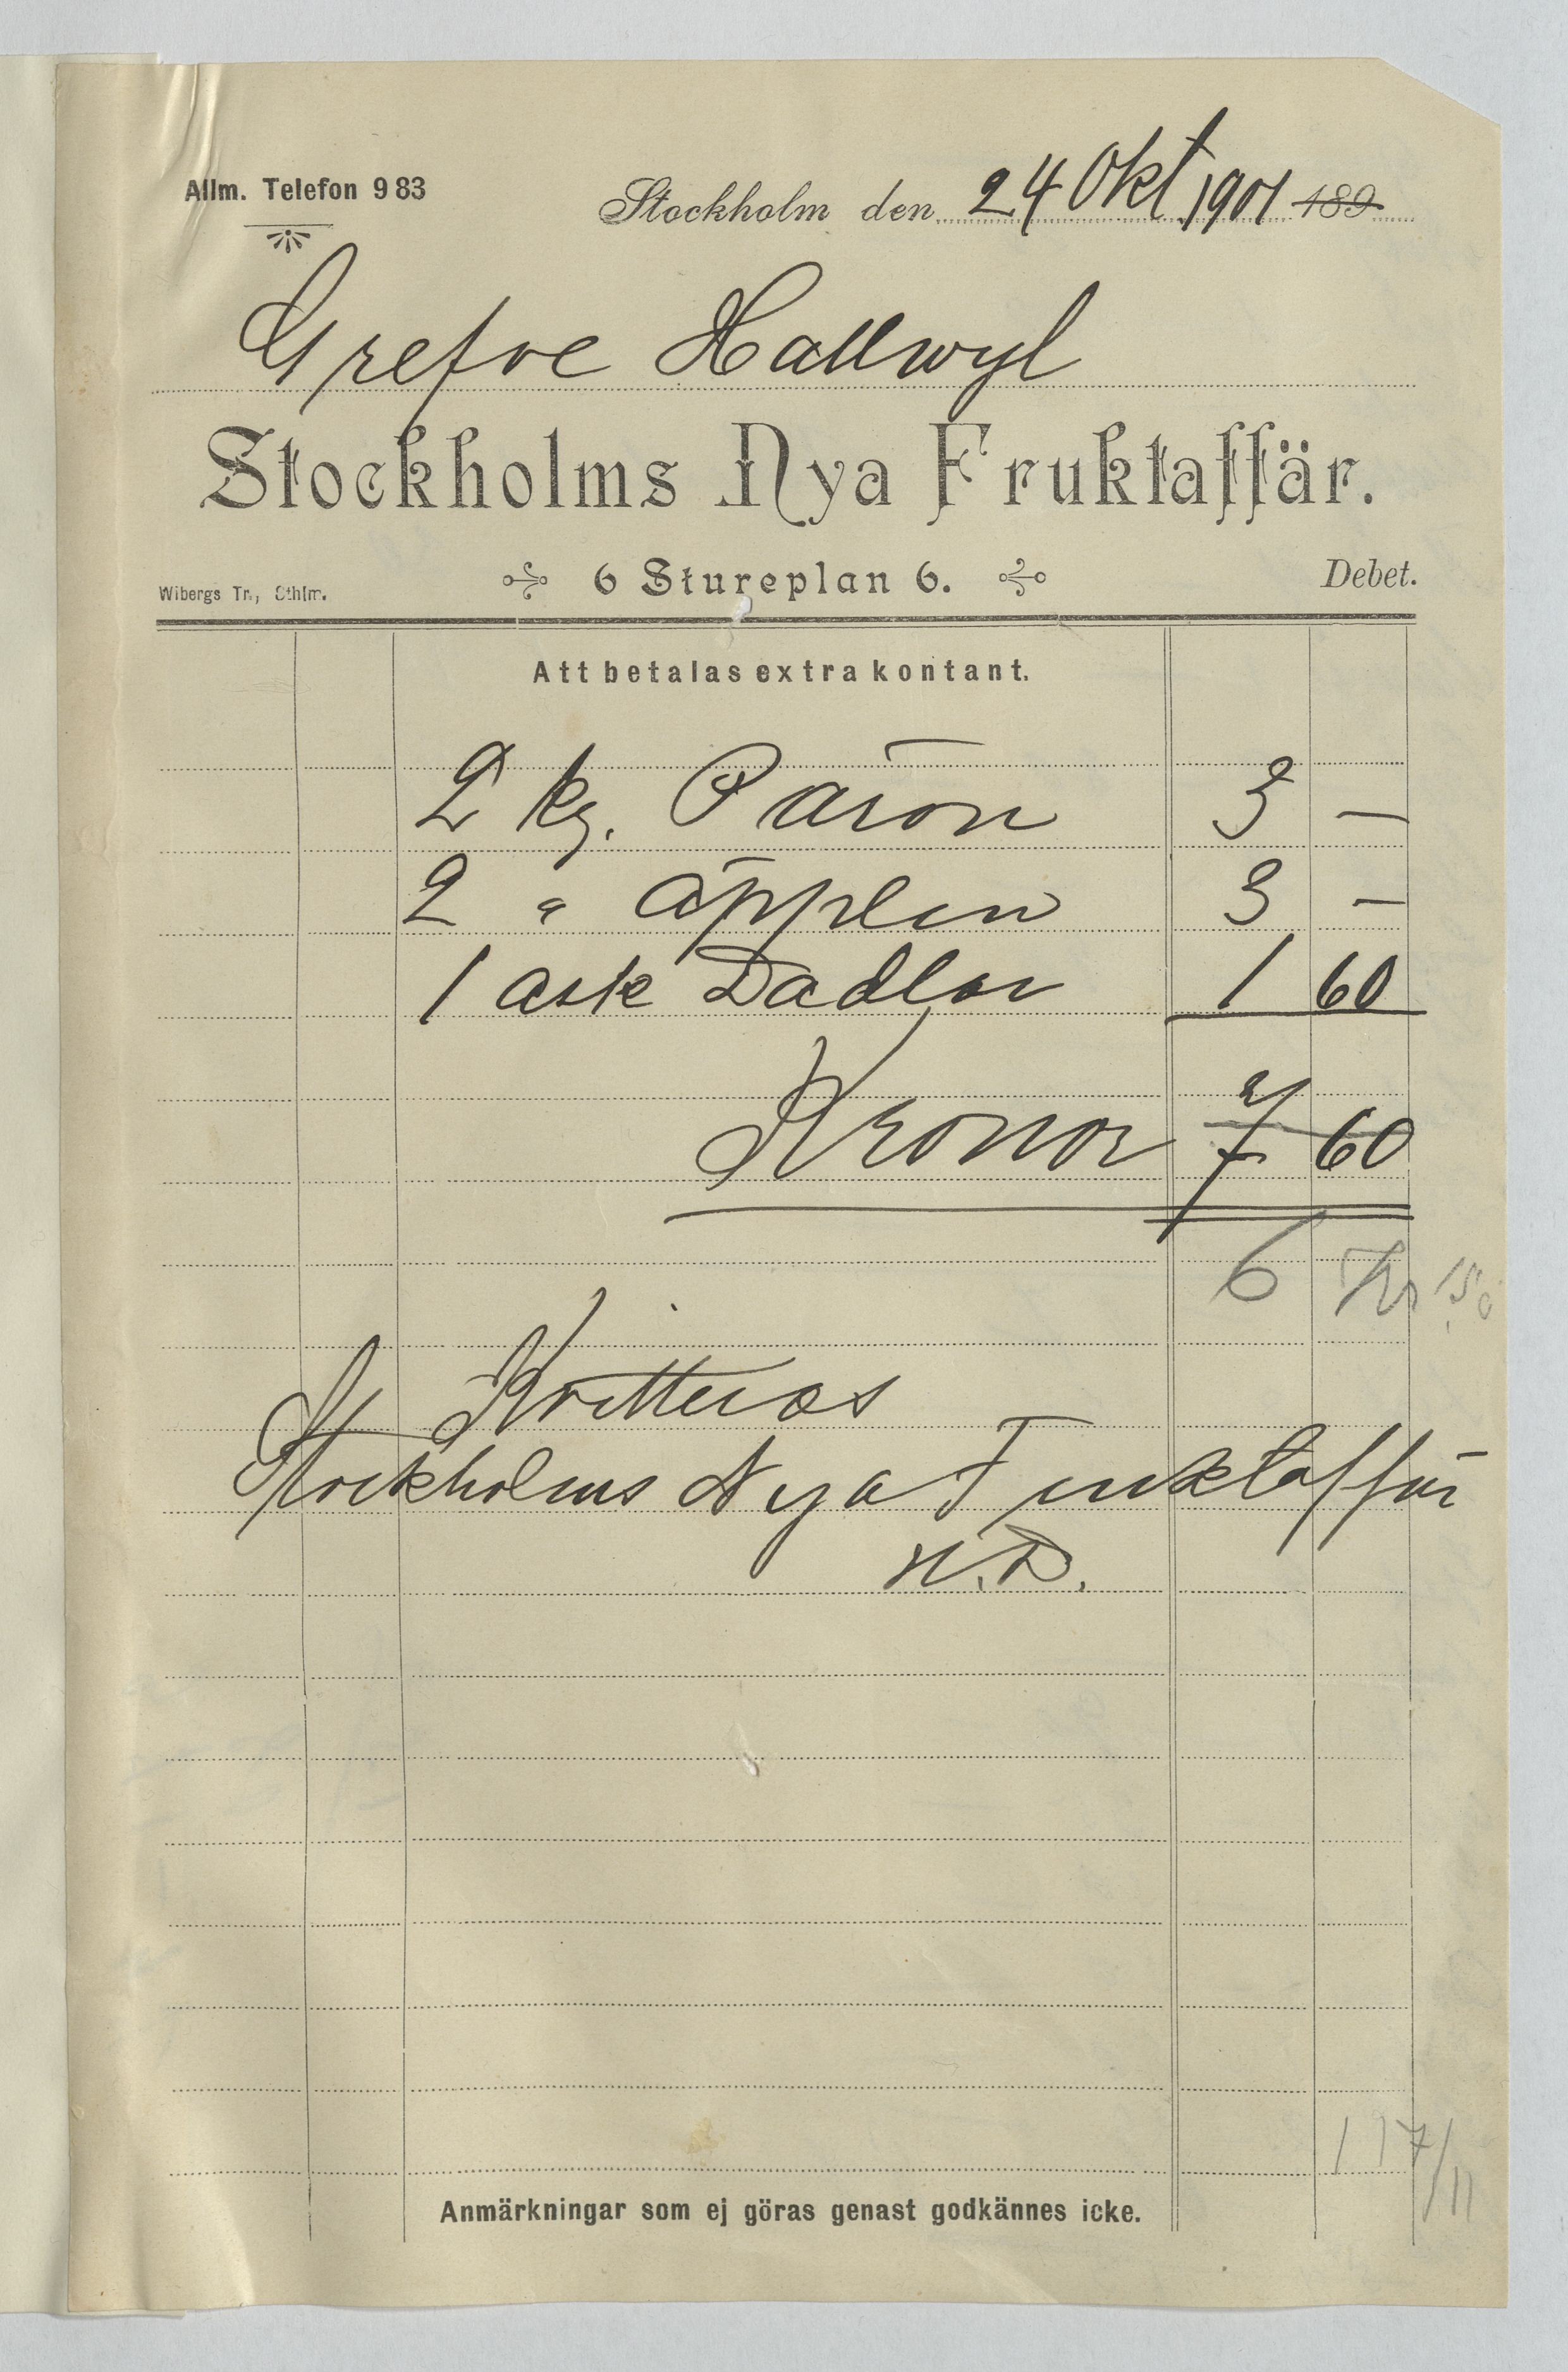 Allm. Telefon 983
Stockholm den 24 Okt 1901 189
Grefve Hallwyl
Stockholms Nya Fruktaffär.
6 Stureplan 6.
Wibergs Tr., Sthlm.
Debet.
Att betalas extra kontant.
2 kg. Päron 3 —
2 " äpplen 3 —
1 ask Dadlar 1 60
Kronor 7 60
6 Kr 15 ö
Kvitteras
Stockholms Nya Fruktaffär
N.D.
17/11
Anmärkningar som ej göras genast godkännes icke.